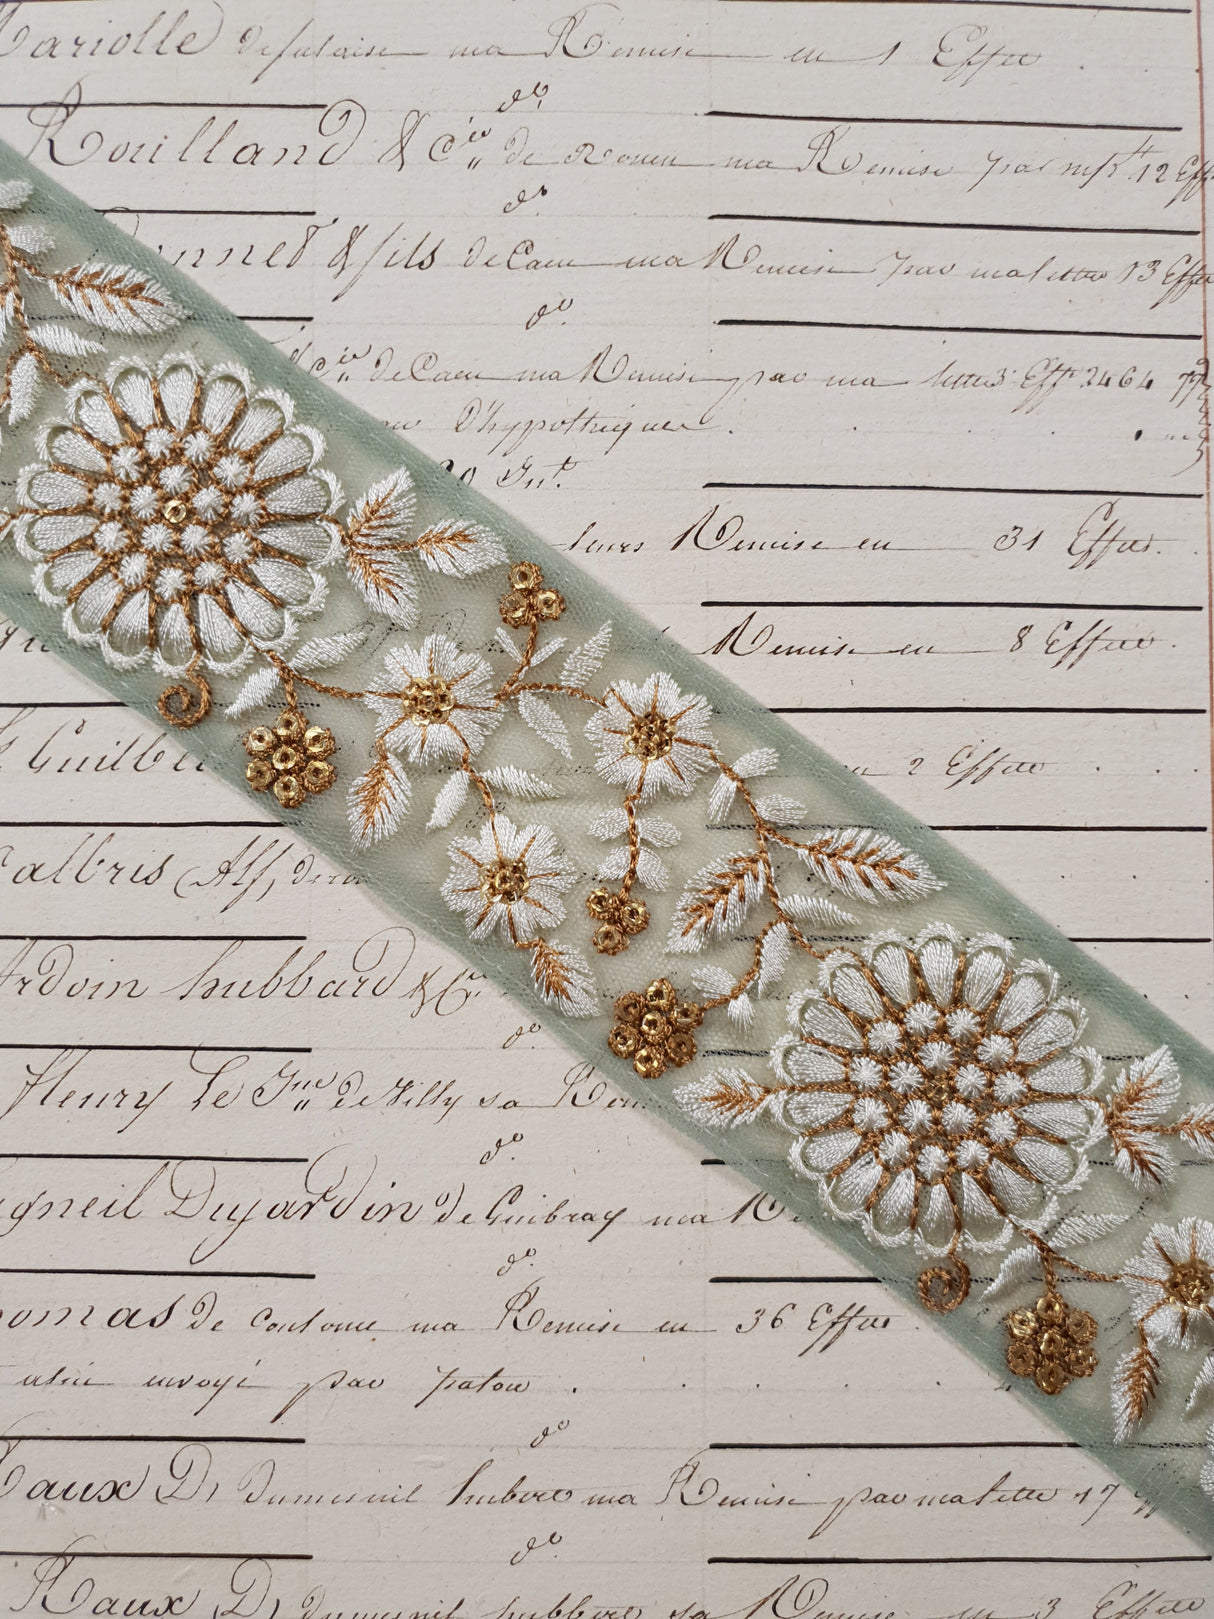 Mariolle de falaise ma Remise en 1 Effet
do
Rouilland & Cie de Rouen ma Remise par m/ 12 Eff
do
nnet & fils de Caen ma Remise par ma lettre 13 Effet
do
& Cie de Caen ma Remise par ma lettre 3 Effts 2464
d'hypothèques
20
leurs Remise en 31 Effets
Remise en 8 Effets
Guilbe
en 2 Effets
Calbris Alf,
Ardoin hubbard & Cie
do
fleury Le Jne de Tilly sa Rem
do
agneil Dujardin de Guibray ma Re
do
omas de ma Remise en 36 Effets
envoyé par
do
Raux D, dumesnil hubert ma Remise par ma lettre 17
do
Raux D, dumesnil hubert sa Remise en 3 Effets